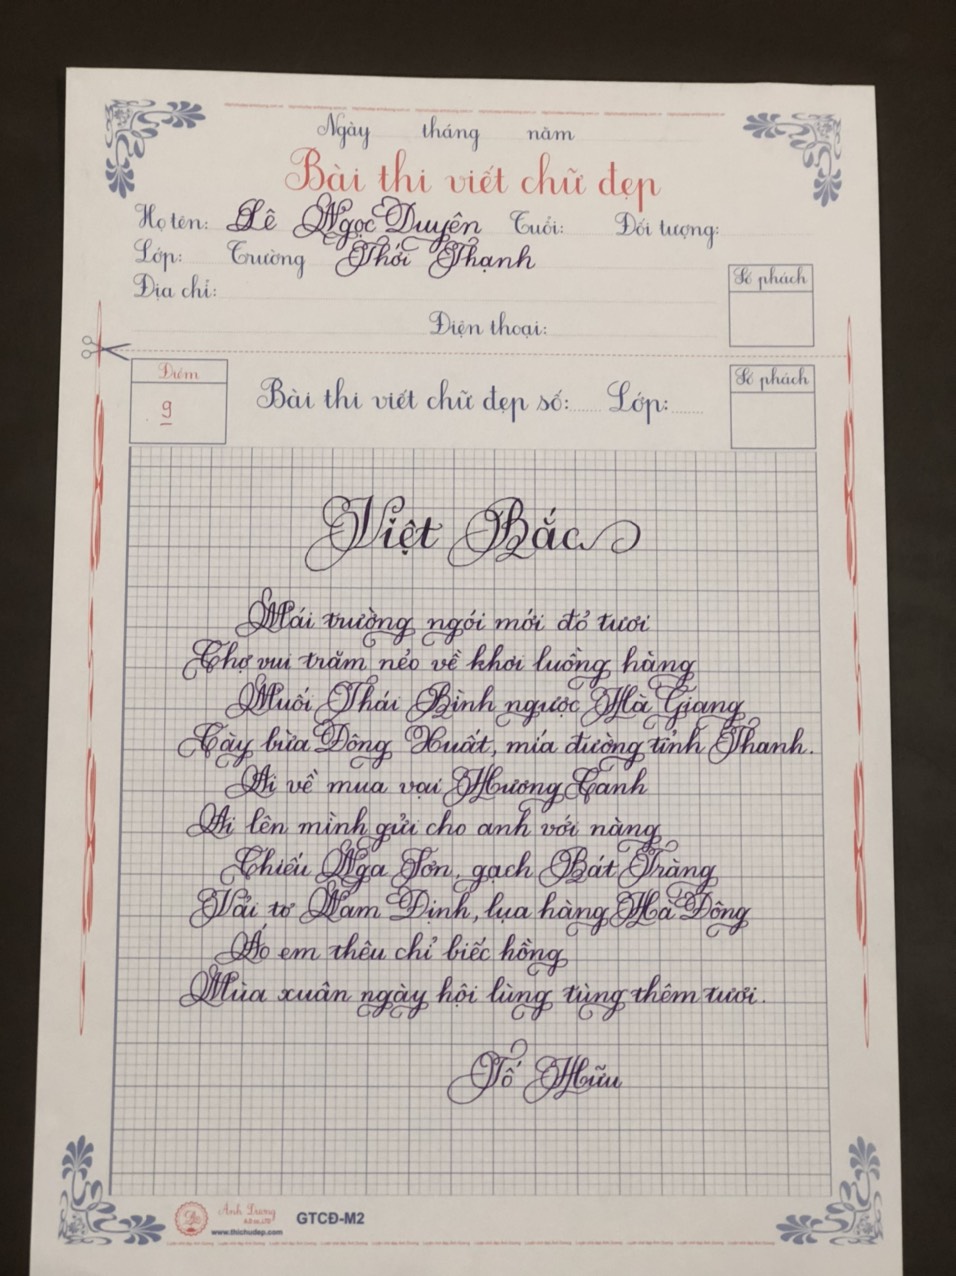 Ngày tháng năm
Bài thi viết chữ đẹp
Họ tên: Lê Ngọc Duyên Tuổi: Đối tượng:
Lớp: Trường Thới Thạnh
Địa chỉ:
Số phách
Điện thoại:
Điểm
9
Bài thi viết chữ đẹp số: Lớp:
Số phách
Việt Bắc
Mái trường ngói mới đỏ tươi
Chợ vui trăm nẻo về khơi luồng hàng
Muối Thái Bình ngược Hà Giang
Cày bừa Đông Xuất, mía đường tỉnh Thanh.
Ai về mua vại Hương Canh
Ai lên mình gửi cho anh với nàng
Chiếu Nga Sơn, gạch Bát Tràng
Vải tơ Nam Định, lụa hàng Hà Đông
Áo em thêu chỉ biếc hồng
Mùa xuân ngày hội lùng tùng thêm tươi.
Tố Hữu
Ánh Dương
www.thichudep.com
GTCĐ-M2